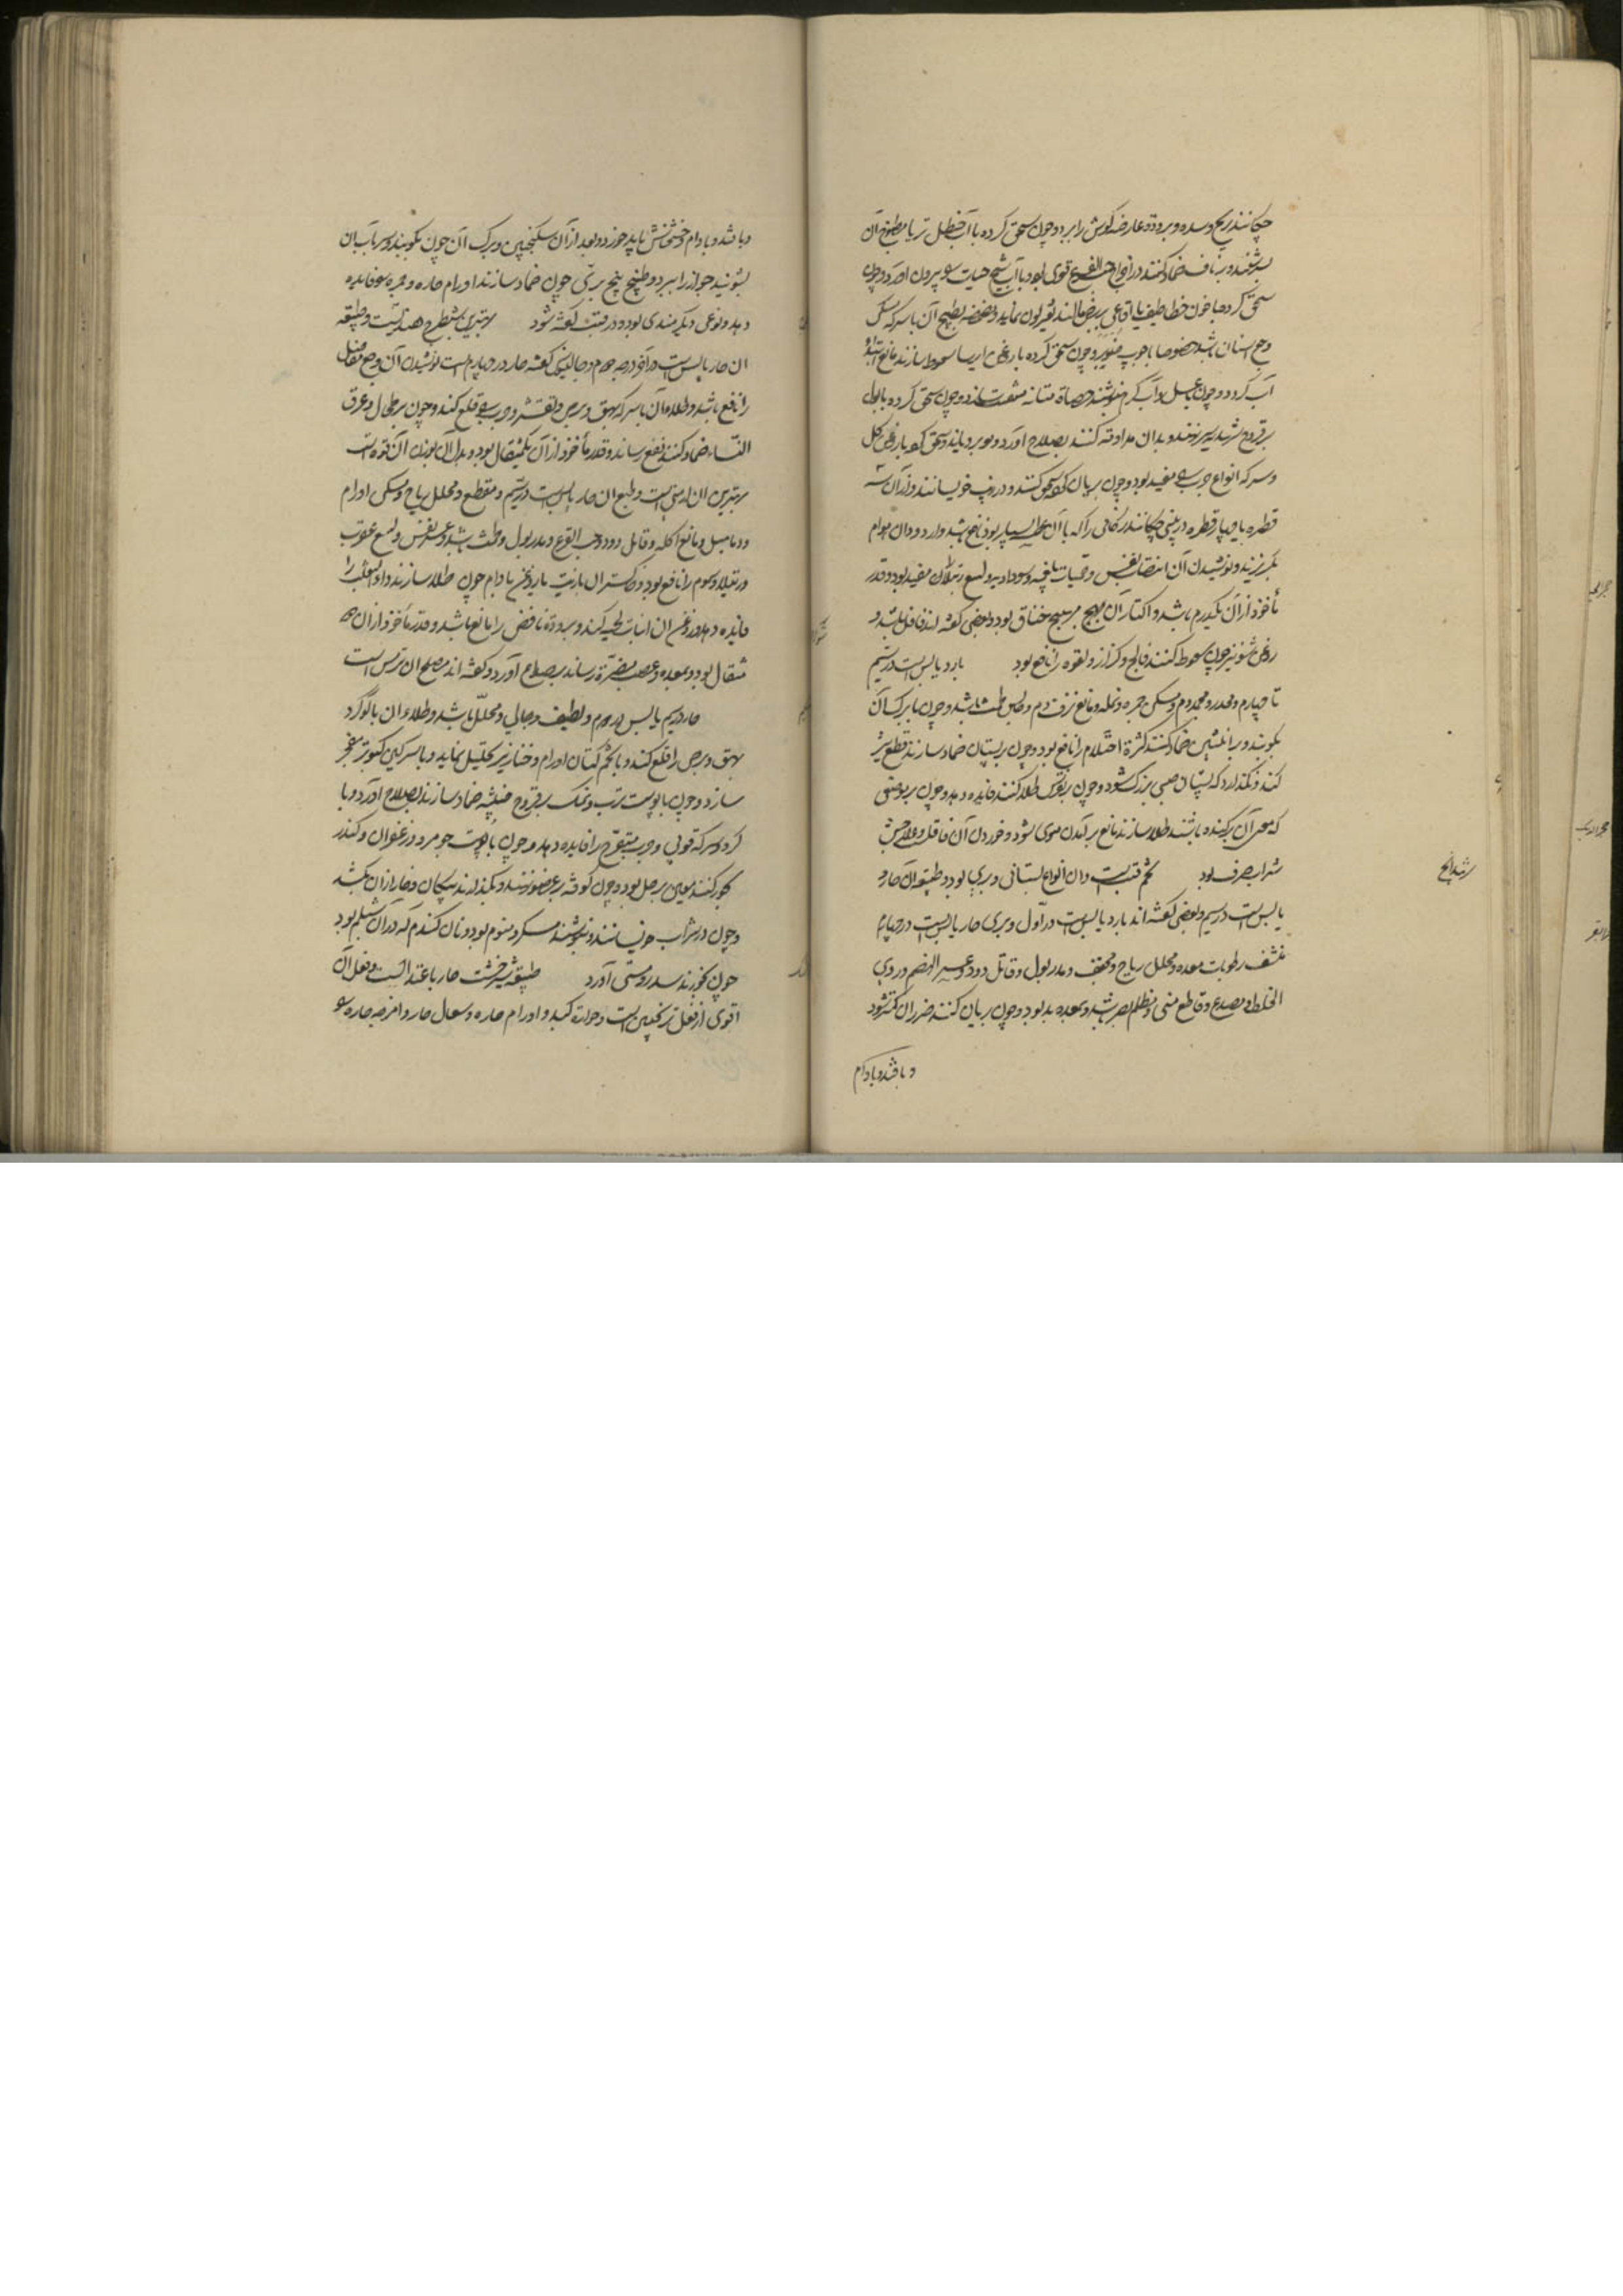 چکانند ریح و سده و برودة عارضه کوش را ببرد و چون سحق کرده با آب حنظل تر یا مطبوخ آن
بسرشند و بر ناف ضماد کنند در اخراج حب القرع قوی بود با آب شیح حیات را بیرون آورد و چون
سحق کرده با خون خطاطیف یا افاعی بر برص مالند تغیر لون نماید و مضمضه بطبیخ آن با سرکه مسکن
وجع اسنان باشد خصوصا با چوب صنوبر و چون سحق کرده با روغن ایرسا سعوط سازند مانع ابتداء
آب کردد و چون با عسل و آب کرم بنوشند حصاة مثانه بود و چون سحق کرده با بول
بر قروح شهدیه نهند و بدان مداومة کنند بصلاح آورد و موی برویاند و سحق با روغن کل
و سرکه انواع جرب را مفید بود و چون بریان کرده سحق کنند و در زیت خویسانند و از آن سه
قطره یا چهار قطره در بینی چکانند زکامی را که با آن عطسه بسیار بود نافع باشد و از دود آن هوام
بگریزند و نوشیدن آن انتصاب نفس و حمیات بلغمیه و سوداویه و لسع رتیلا را مفید بود و قدر
مأخوذ از آن یکدرم باشد و اکثار آن مهیج خناق بود و بعضی کفته اند قاتل باشد و
روغن شونیز چون سعوط کنند فالج و کزاز و لقوه را نافع بود بارد یابس است در سیم
تا چهارم و مخدر و مجمد دم و مسکن حمره و نمله و مانع نزف دم و حابس طمث باشد و چون با برک آن
بکوبند و بر انثیین ضماد کنند کثرة احتلام را نافع بود و چون بر پستان ضماد سازند قطع شیر
کند و نکذارد که پستان صبی بزرک شود و چون بر نقرس طلا کنند فایده دهد و چون بر موضعی
که موی آن برکنده باشند طلا سازند مانع برآمدن موی شود و خوردن آن قاتل و علاجش
شراب صرف بود تخم قنب است و ان انواع بستانی و بری بود و طبیعة آن حار و
یابس است در سیم و بعضی کفته اند بارد یابس است در اول و بری حار یابس است در چهارم
منشف رطوبات معده و محلل ریاح و مجفف و مدر بول و قاتل دود و عسیر الهضم و ردی
الخلط و مصدع و قاطع منی و مظلم بصر باشد و بمعده بد بود و چون بریان کنند ضرر آن کمتر شود
و با قند و بادام
شهدانج
و با قند و بادام و خشخاش باید خورد و بعد از آن سکنجبین و برک آن چون بکوبند و سر بآب آن
بشویند حزاز را ببرد و طبیخ بیخ بری چون ضماد سازند اورام حاره و حمره را فایده
دهد و نوعی دیکر هندی بود و در قنب کفته شود بهترین شیطرج هندیست و طبیعة
ان حار یابس است در آخر درجه دوم و جالینوس کفته حار در چهارم است نوشیدن آن وجع مفاصل
را نافع باشد و طلاء آن با سرکه بهق و برص و تقشر و جرب را قلع کند و چون بر طحال و عرق
النساء ضماد کنند نفع رساند و قدر مأخوذ از آن یکمثقال بود و بدل آن بوزن آن فوه است
بهترین ان ارمنی است و طبع ان حار یابس است در سیم و مقطع و محلل ریاح و مسکن اورام
و دمامیل و مانع اکله و قاتل دود و حب القرع و مدر بول و طمث باشد و عسر نفس و لسع عقرب
و رتیلا و سموم را نافع بود و خاکستر ان با زیت یا روغن بادام چون طلا سازند داء الثعلب را
فایده دهد و روغن ان انبات لحیه کند و برودة نافض را مانع باشد و قدر مأخوذ از ان
مثقال بود و بمعده و عصب مضرة رساند بصلاح آورد و کفته اند مصلح ان ترمس است
حار در سیم یابس در دوم و لطیف و جالی و محلل باشد و طلاء ان با کوکرد
بهق و برص را قلع کند و با تخم کتان اورام و خنازیر تحلیل نماید و با سرکین کبوتر منفجر
سازد و چون با پوست ترب و نمک بر قروح خبیثه ضماد سازند بصلاح آورد و با
سرکه قوبی و جرب متقرح را فایده دهد و چون با پوست جو مر و زعفران و کندر
بخور کنند معین بر حبل بود و چون کوفته بر عضو نهند و بکذارند پیکان و خار از ان بکشد
و چون در شراب خویسانند و بنوشند مسکر و منوم بود و نان کندم که در آن شیلم بود
چون بخورند سدر و مستی آورد طبیعة شیرخشت حار باعتدالست و فعل آن
اقوی از فعل ترنجبین است و حرارة کبد و اورام حاره و سعال حار و امزجه حاره را